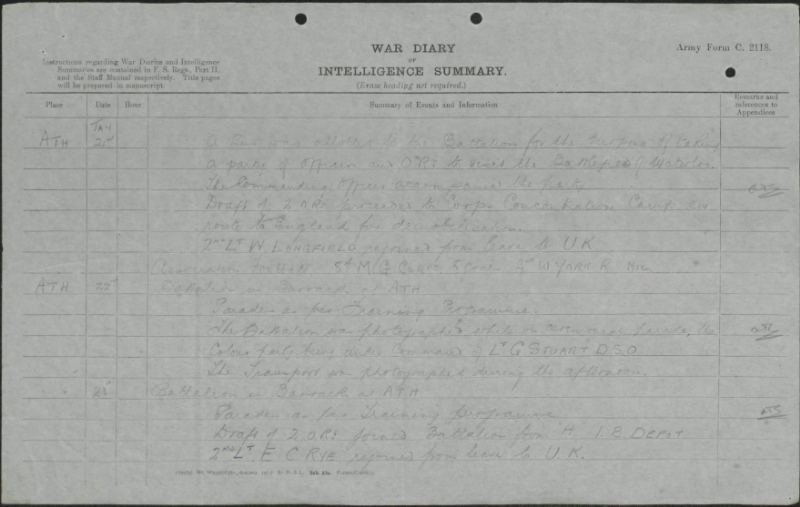 WAR DIARY
OF
INTELLIGENCE SUMMARY.
(Erase heading not required.)
Army Form C. 2118.
Instructions regarding War Diaries and Intelligence
Summaries are contained in F. S. Regs., Part II.
and the Staff Manual respectively. Title pages
will be prepared in manuscript.
Place Date Hour Summary of Events and Information Remarks and references to Appendices
ATH 21st A Bus was allotted to the Battalion for the purpose of taking
a party of Officers and O.Rs to visit the Battlefield of Waterloo.
The Commanding Officer accompanied the party
Draft of 2 O.Rs proceeded to Corps Concentration Camp en
route to England for demobilization.
2nd Lt W. LONGFIELD rejoined from leave to U.K
Association Football M/G Corps 2nd W. YORK. R. NIL
ATH 22nd Battalion in Barracks at ATH
Parades as per Training Programme
The Battalion was photographed while on ceremonial parade, the
Colour party being under Command of Lt G STUART D.S.O.
The Transport was photographed during the afternoon.
23rd Battalion in Barracks at ATH
Parades as per Training Programme
Draft of 2 O.Rs joined Battalion from H I.B. DEPOT
2nd Lt. E C RYE rejoined from leave to U.K.